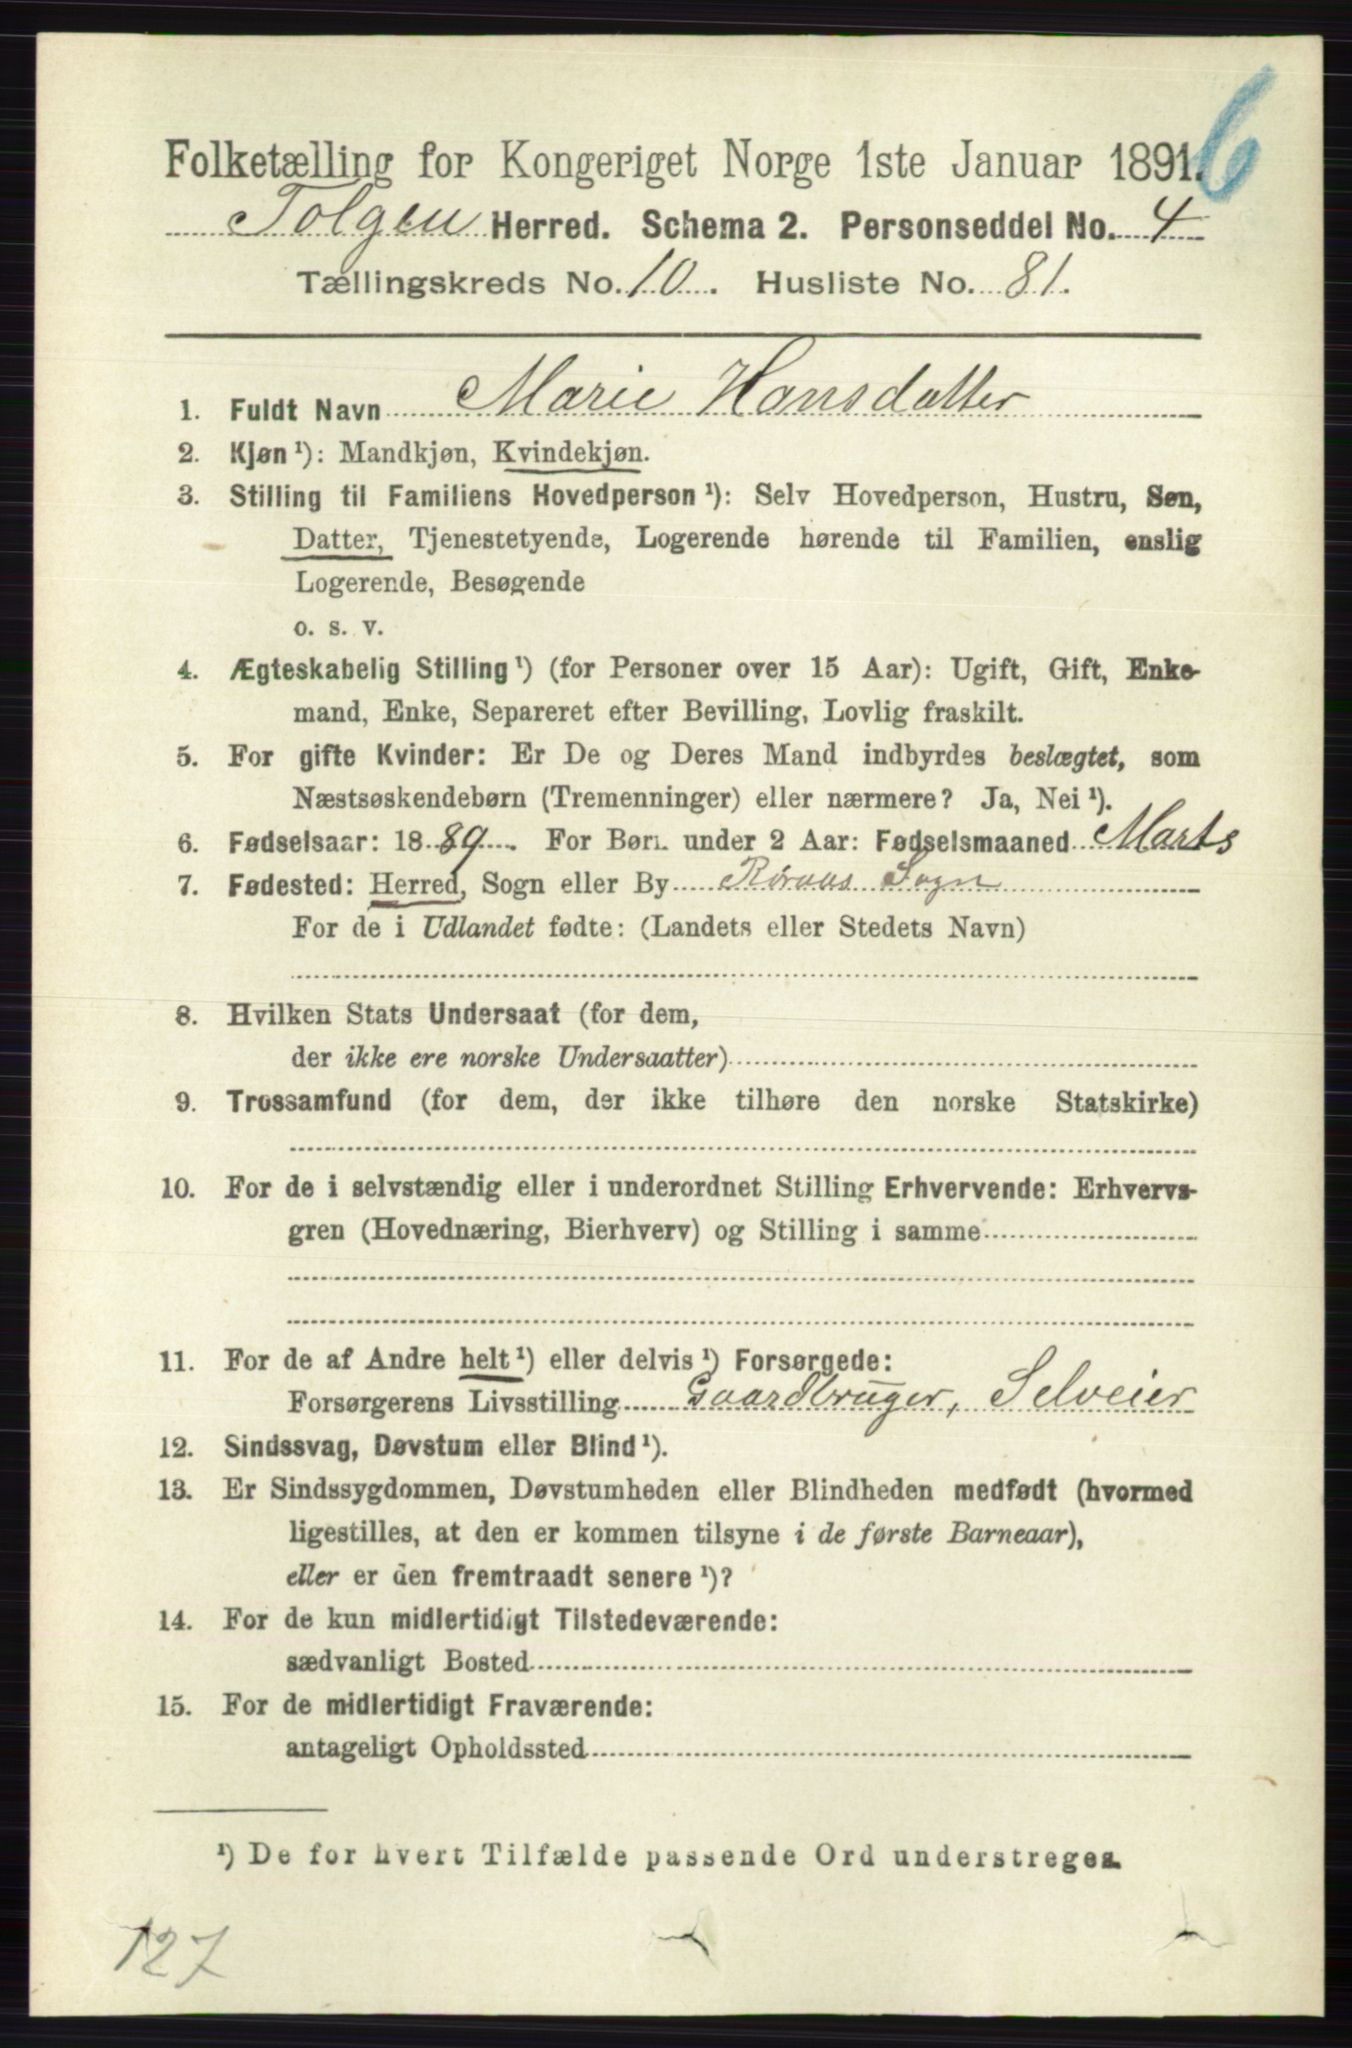 6
Folketælling for Kongeriget Norge 1ste Januar 1891.
Tolgen Herred. Schema 2. Personseddel No. 4
Tællingskreds No. 10. Husliste No. 81.
1. Fuldt Navn Marie Hansdatter
2. Kjøn ¹): Mandkjøn, Kvindekjøn.
3. Stilling til Familiens Hovedperson ¹): Selv Hovedperson, Hustru, Søn,
Datter, Tjenestetyende, Logerende hørende til Familien, enslig
Logerende, Besøgende
o. s. v.
4. Ægteskabelig Stilling ¹) (for Personer over 15 Aar): Ugift, Gift, Enke-
mand, Enke, Separeret efter Bevilling, Lovlig fraskilt.
5. For gifte Kvinder: Er De og Deres Mand indbyrdes beslægtet, som
Næstsøskendebørn (Tremenninger) eller nærmere? Ja, Nei ¹).
6. Fødselsaar: 1889. For Børn under 2 Aar: Fødselsmaaned Marts
7. Fødested: Herred, Sogn eller By Røraas Sogn
For de i Udlandet fødte: (Landets eller Stedets Navn)
8. Hvilken Stats Undersaat (for dem,
der ikke ere norske Undersaatter)
9. Trossamfund (for dem, der ikke tilhøre den norske Statskirke)
10. For de i selvstændig eller i underordnet Stilling Erhvervende: Erhvervs-
gren (Hovednæring, Bierhverv) og Stilling i samme
11. For de af Andre helt ¹) eller delvis ¹) Forsørgede:
Forsørgerens Livsstilling Gaardbruger, Selveier
12. Sindssvag, Døvstum eller Blind ¹).
13. Er Sindssygdommen, Døvstumheden eller Blindheden medfødt (hvormed
ligestilles, at den er kommen tilsyne i de første Barneaar),
eller er den fremtraadt senere ¹)?
14. For de kun midlertidigt Tilstedeværende:
sædvanligt Bosted
15. For de midlertidigt Fraværende:
antageligt Opholdssted
¹) De for hvert Tilfælde passende Ord understreges.
127